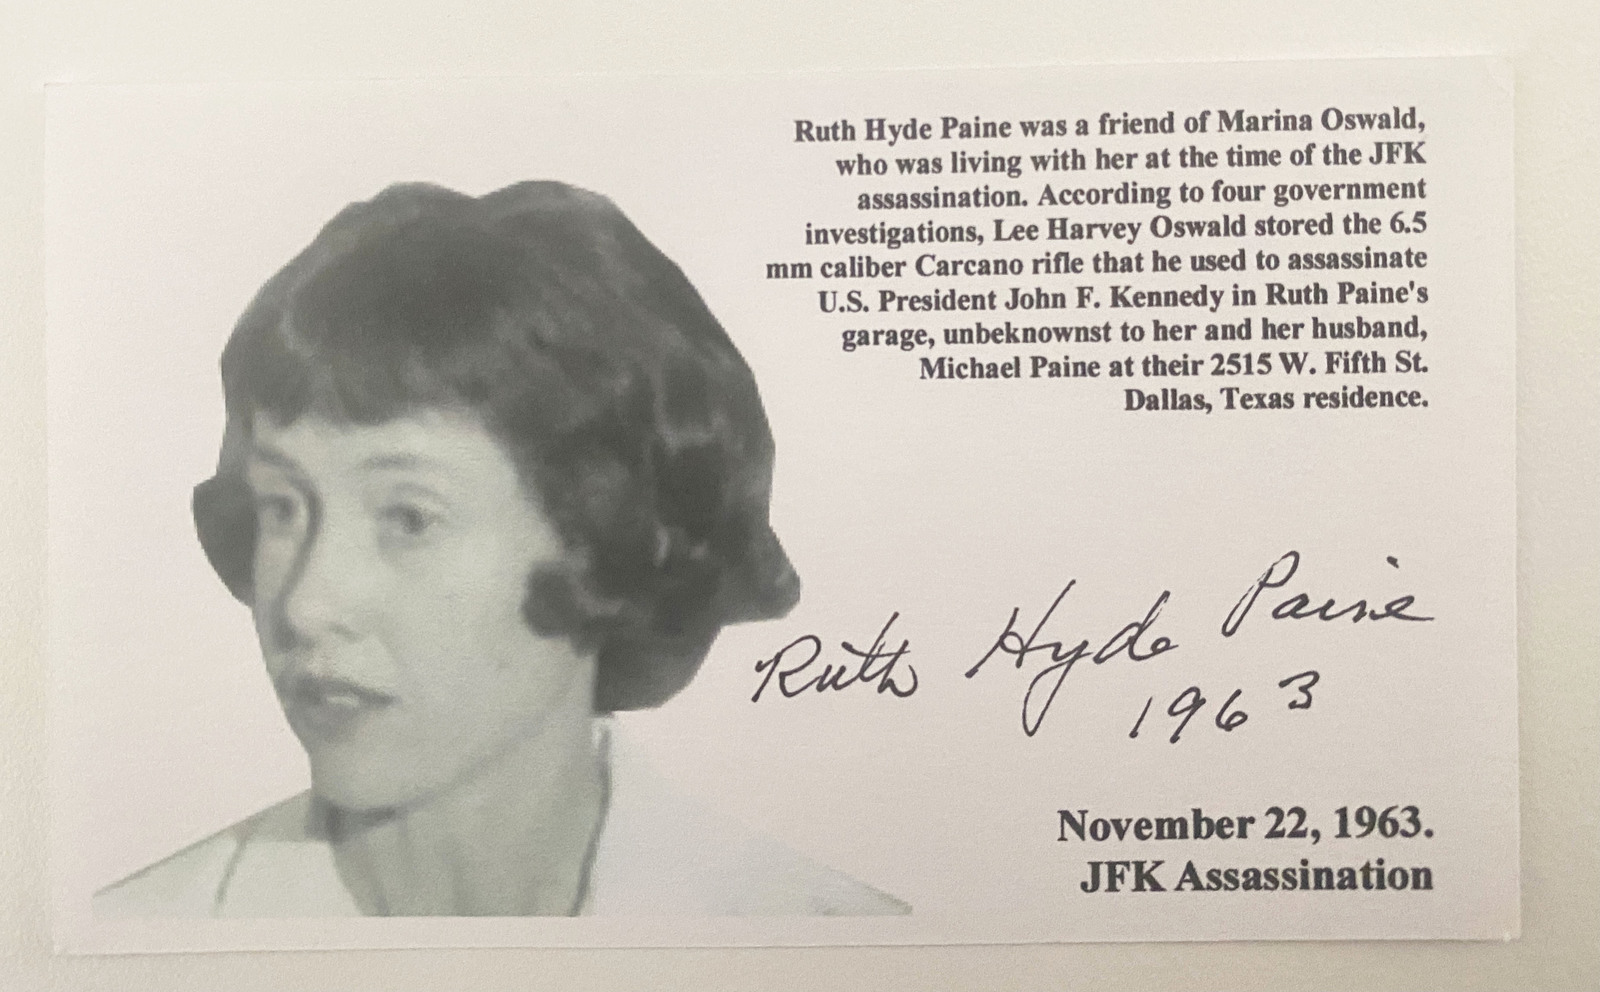 Ruth Hyde Paine was a friend of Marina Oswald,
who was living with her at the time of the JFK
assassination. According to four government
investigations, Lee Harvey Oswald stored the 6.5
mm caliber Carcano rifle that he used to assassinate
U.S. President John F. Kennedy in Ruth Paine's
garage, unbeknownst to her and her husband,
Michael Paine at their 2515 W. Fifth St.
Dallas, Texas residence.
Ruth Hyde Paine
1963
November 22, 1963.
JFK Assassination